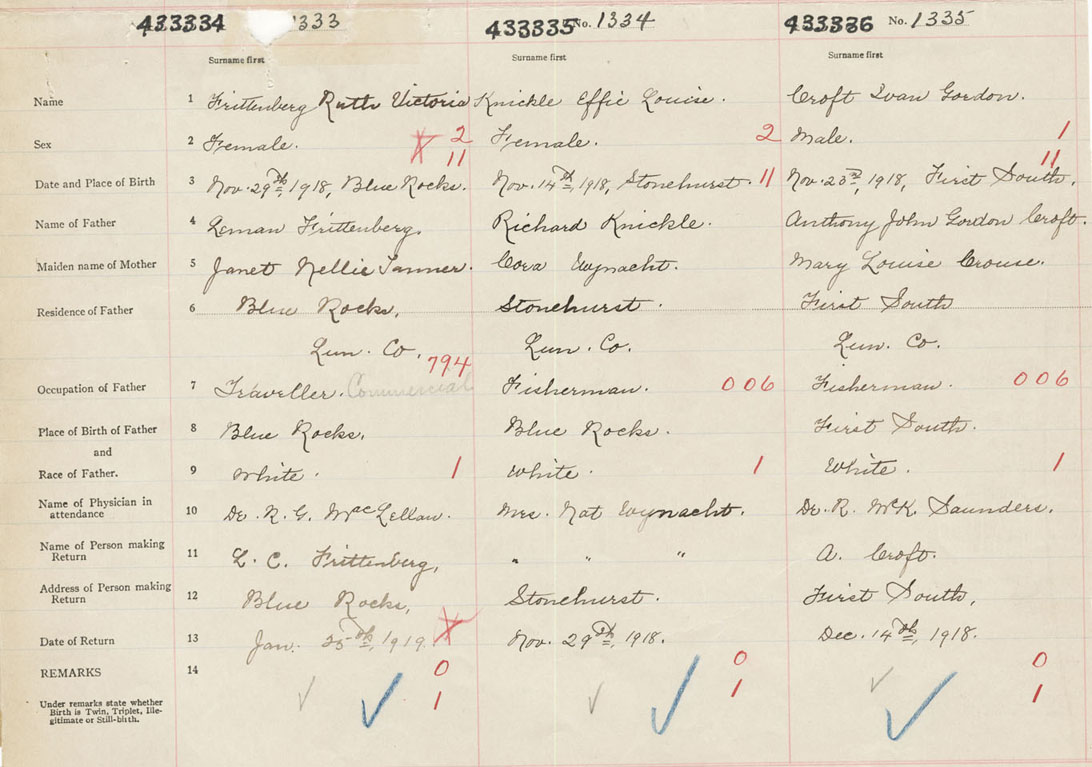 433334 1333 433335 No. 1334 433336 No. 1335
Surname first Surname first Surname first
Name 1 Frittenberg Ruth Victoria Knickle Effie Louise. Croft Ivan Gordon.
Sex 2 Female. 2 Female. 2 Male. 1
11 11
Date and Place of Birth 3 Nov. 29th, 1918, Blue Rocks. Nov. 14th, 1918, Stonehurst. 11 Nov. 23rd, 1918, First South.
Name of Father 4 Leman Frittenberg. Richard Knickle. Anthony John Gordon Croft.
Maiden name of Mother 5 Janet Nellie Tanner. Cora Wynacht. Mary Louise Crouse.
Residence of Father 6 Blue Rocks, Stonehurst. First South
Lun. Co. Lun. Co. Lun. Co.
794
Occupation of Father 7 Traveller. Commercial Fisherman. 006 Fisherman. 006
Place of Birth of Father 8 Blue Rocks. Blue Rocks. First South.
and
Race of Father. 9 White. 1 White. 1 White. 1
Name of Physician in
attendance 10 Dr. R. G. MacLellan. Mrs. Nat Wynacht. Dr. R. McK. Saunders.
Name of Person making
Return 11 L. C. Frittenberg, " " " A. Croft.
Address of Person making
Return 12 Blue Rocks, Stonehurst. First South,
Date of Return 13 Jan. 25th, 1919. Nov. 29th, 1918. Dec. 14th, 1918.
REMARKS 14 0 0 0
Under remarks state whether 1 1 1
Birth is Twin, Triplet, Ille-
gitimate or Still-birth.